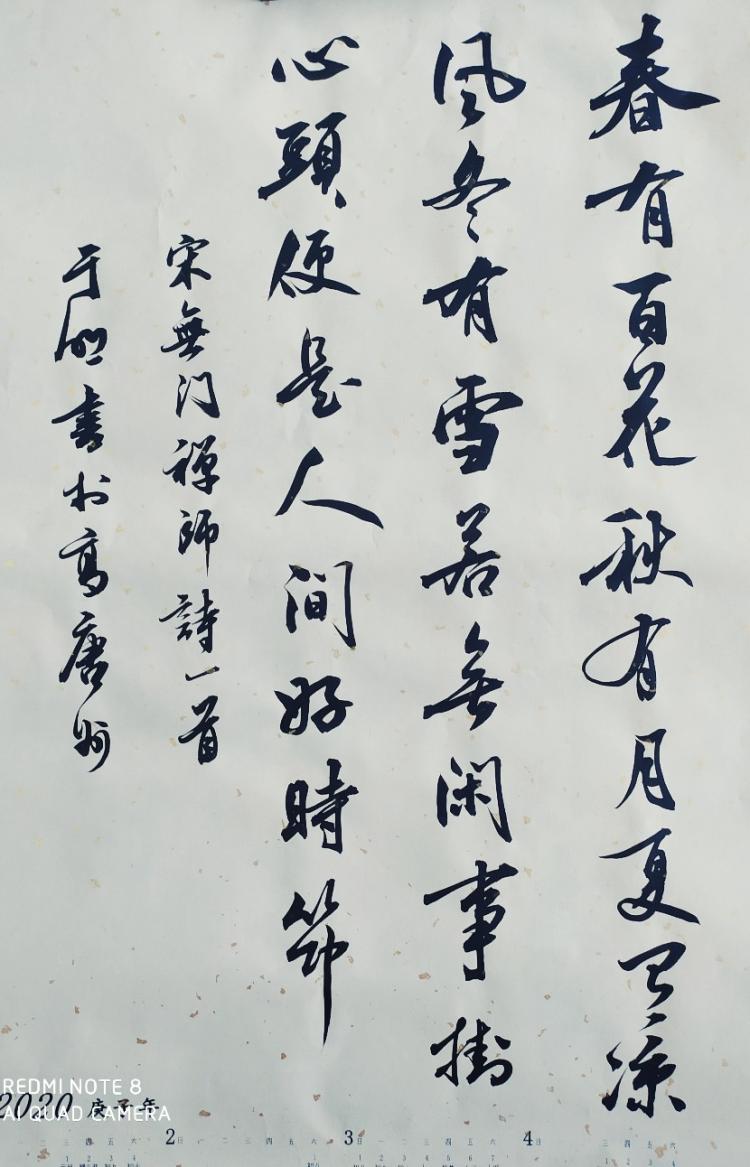 春有百花秋有月夏有凉
风冬有雪若無闲事掛
心頭便是人间好時節
宋無门禅師詩一首
于明書於高唐州
2020 庚子年
REDMI NOTE 8
AI QUAD CAMERA
2 3 4